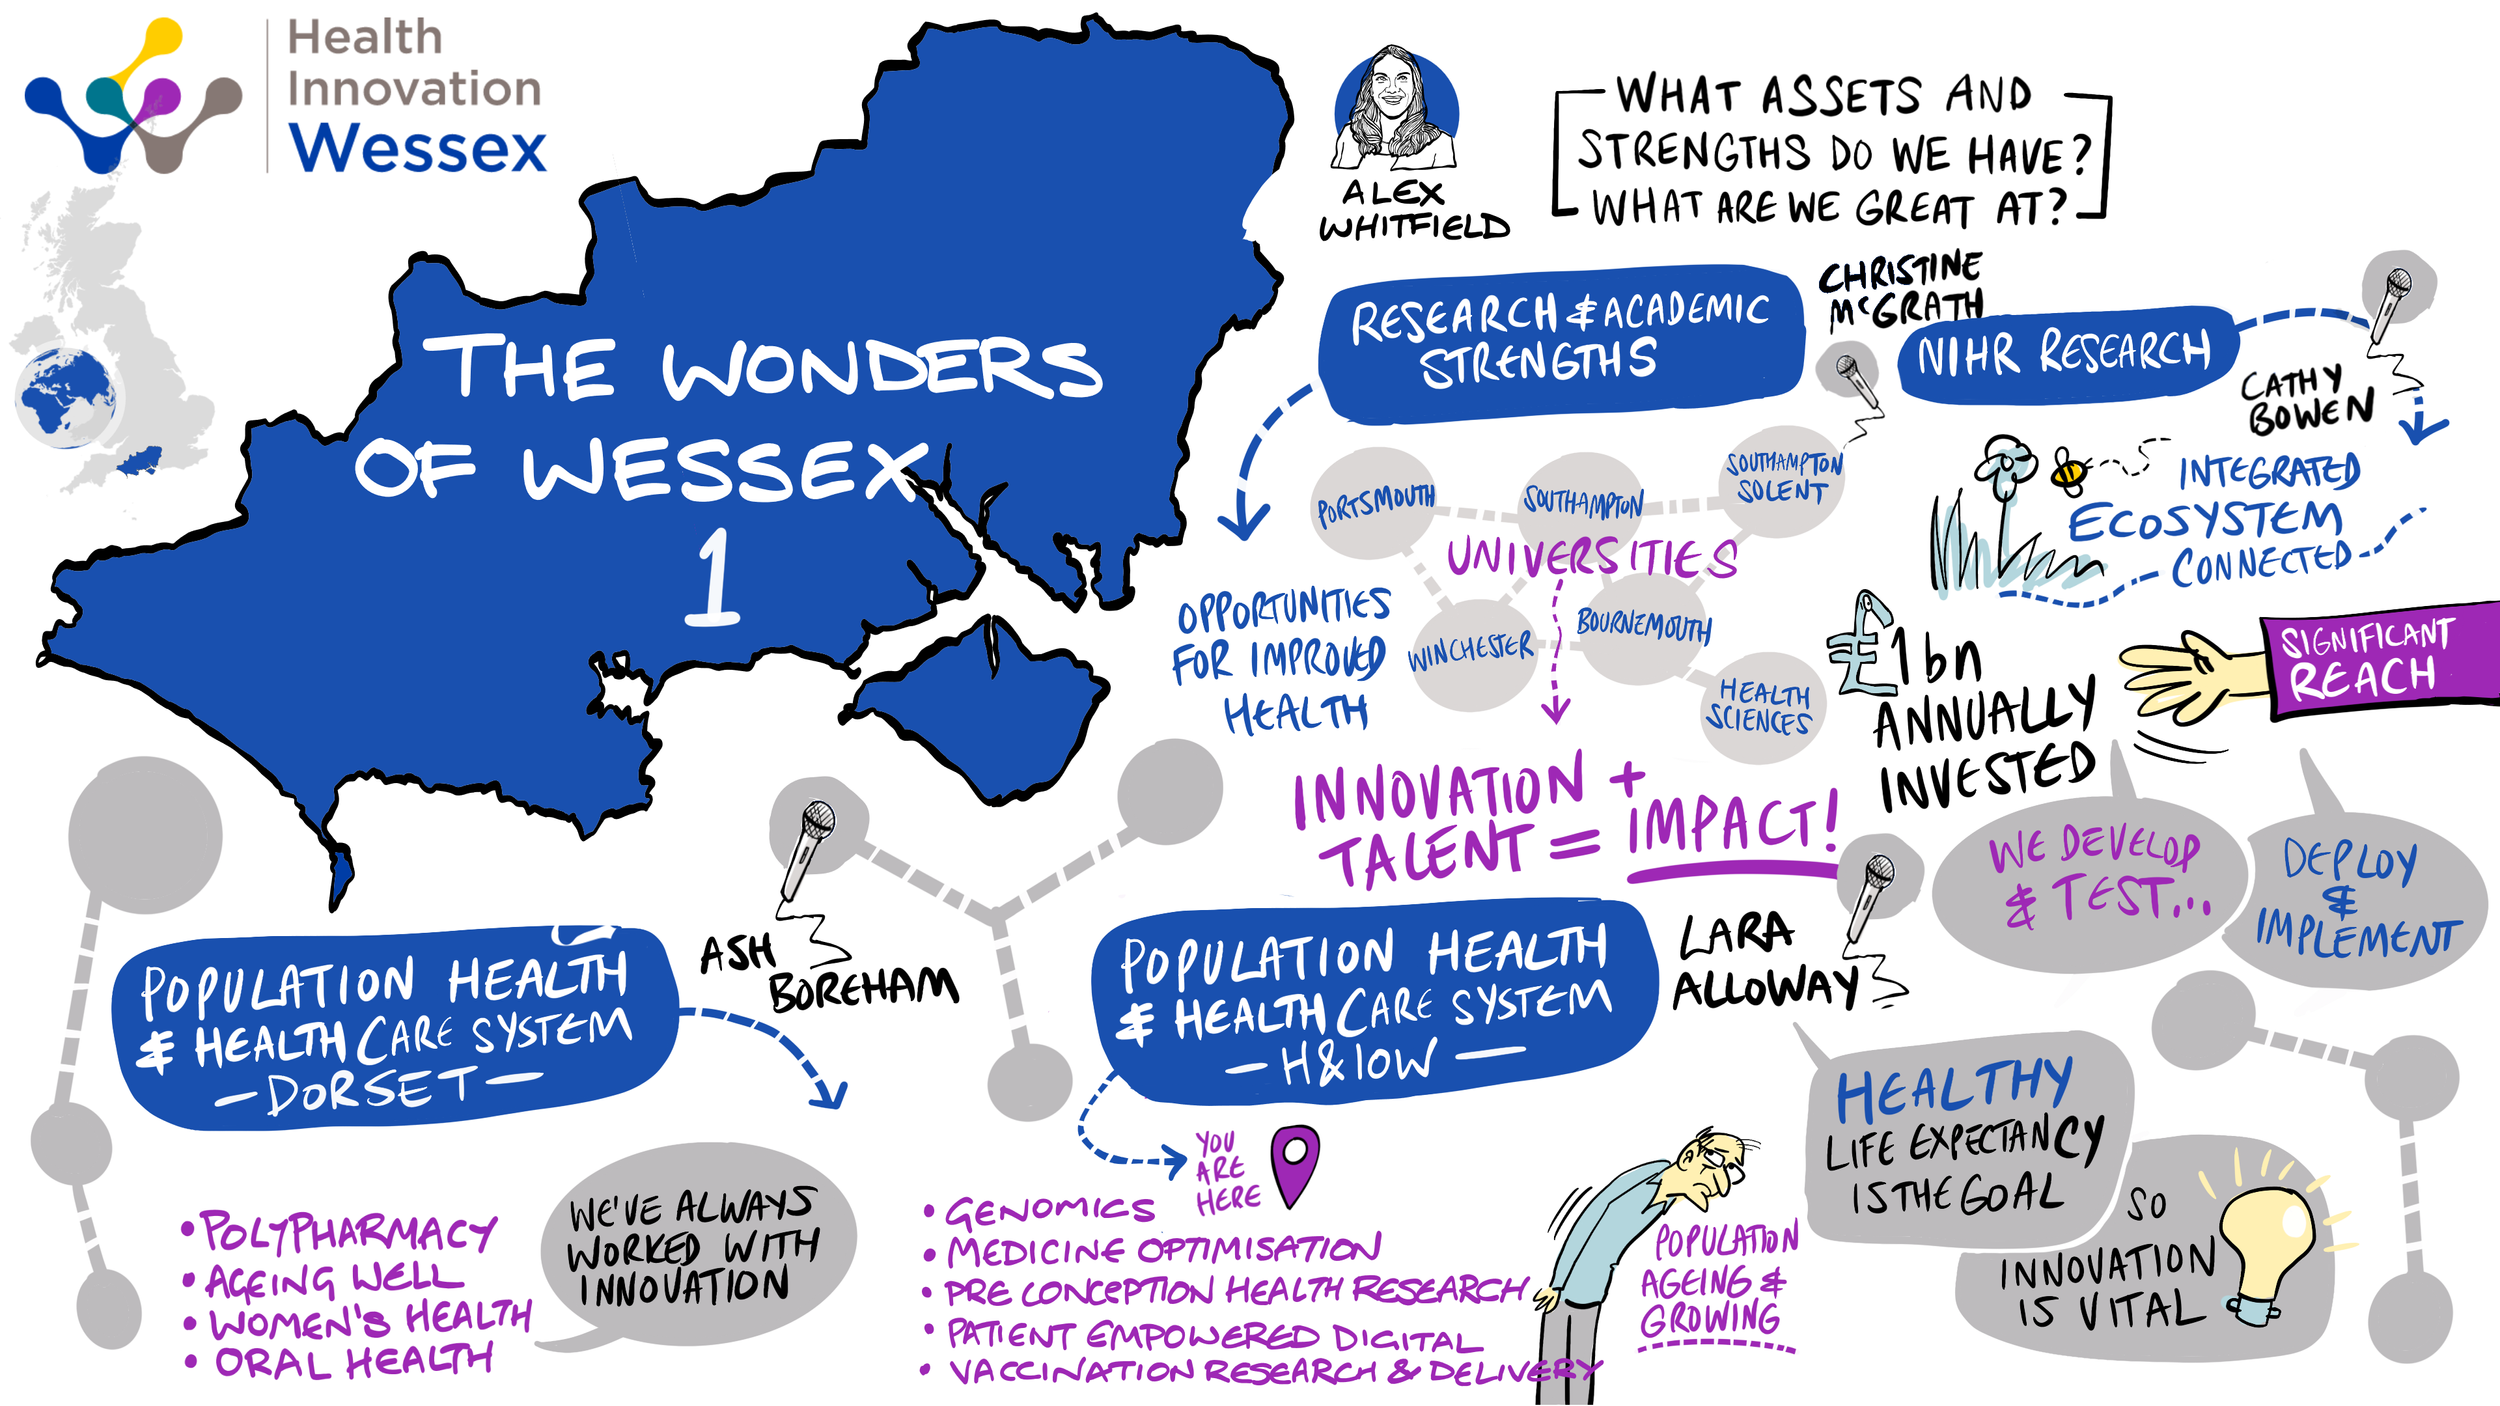 Health
Innovation
Wessex
THE WONDERS
OF WESSEX
1
ALEX
WHITFIELD
WHAT ASSETS AND
STRENGTHS DO WE HAVE?
WHAT ARE WE GREAT AT?
RESEARCH & ACADEMIC
STRENGTHS
CHRISTINE
McGRATH
NIHR RESEARCH
CATHY
BOWEN
OPPORTUNITIES
FOR IMPROVED
HEALTH
PORTSMOUTH
SOUTHAMPTON
SOUTHAMPTON
SOLENT
UNIVERSITIES
WINCHESTER
BOURNEMOUTH
HEALTH
SCIENCES
INNOVATION +
TALENT = IMPACT!
INTEGRATED
ECOSYSTEM
CONNECTED
£1bn
ANNUALLY
INVESTED
SIGNIFICANT
REACH
WE DEVELOP
& TEST...
DEPLOY
&
IMPLEMENT
POPULATION HEALTH
& HEALTHCARE SYSTEM
— DORSET —
ASH
BOREHAM
• POLYPHARMACY
• AGEING WELL
• WOMEN'S HEALTH
• ORAL HEALTH
WE'VE ALWAYS
WORKED WITH
INNOVATION
POPULATION HEALTH
& HEALTHCARE SYSTEM
— H&IOW —
LARA
ALLOWAY
YOU
ARE
HERE
• GENOMICS
• MEDICINE OPTIMISATION
• PRE CONCEPTION HEALTH RESEARCH
• PATIENT EMPOWERED DIGITAL
• VACCINATION RESEARCH & DELIVERY
POPULATION
AGEING &
GROWING
HEALTHY
LIFE EXPECTANCY
IS THE GOAL
SO
INNOVATION
IS VITAL